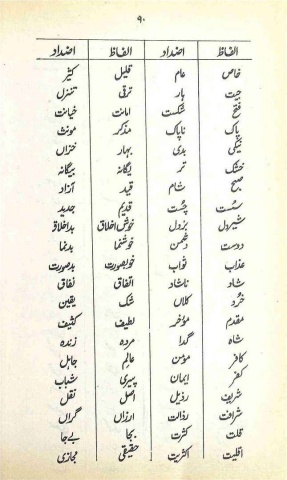 ۹۰
الفاظ اضداد الفاظ اضداد
خاص عام قلیل کثیر
جیت ہار ترقی تنزل
فتح شکست امانت خیانت
پاک ناپاک مذکر مونث
نیکی بدی بہار خزاں
خشک تر یگانہ بیگانہ
صبح شام قید آزاد
سست چست قدیم جدید
شیردل بزدل خوش اخلاق بداخلاق
دوست دشمن خوشنما بدنما
عذاب ثواب خوبصورت بدصورت
شاد ناشاد اتفاق نفاق
خرد کلاں شک یقین
مقدم مؤخر لطیف کثیف
شاہ گدا مردہ زندہ
کافر مومن عالم جاہل
کفر ایمان پیری شباب
شریف رذیل اصل نقل
شرافت رذالت ارزاں گراں
قلت کثرت بجا بے جا
اقلیت اکثریت حقیقی مجازی